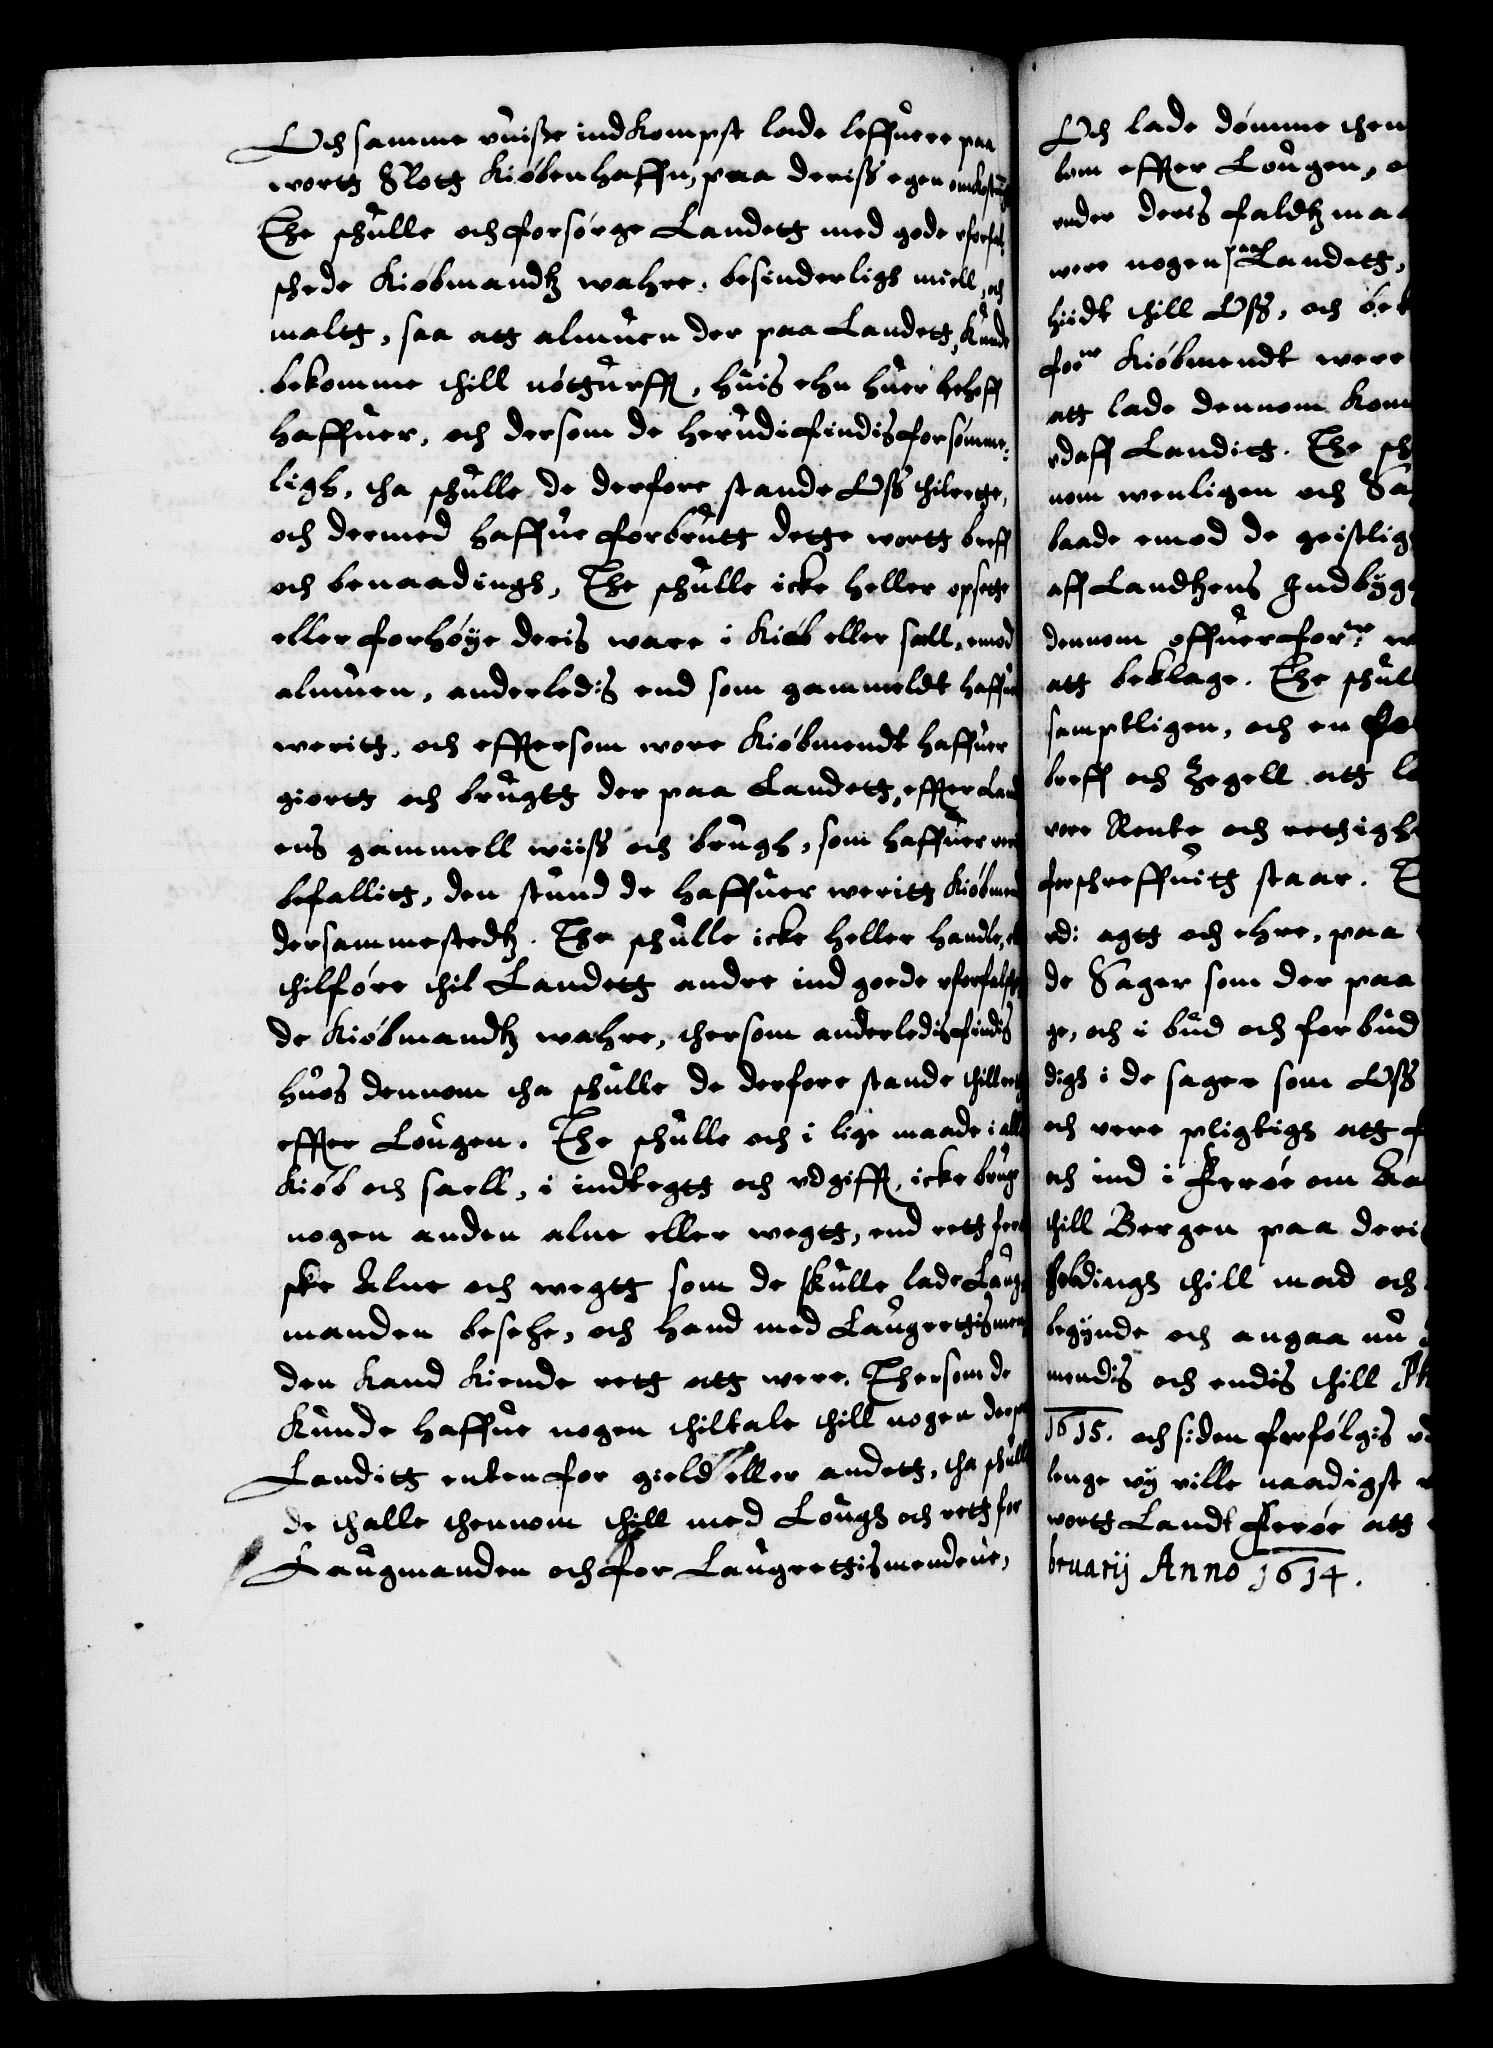 Och samme vnisse indkompst lade leffuere paa
wortt Slott Kiøbenhaffn, paa deriss egen omkostning
The schulle och forsørge Landett med gode vforfal-
schede Kiøbmandtz wahre, besinderligh miell, och
maltt, saa att almuen der paa Landett, kunde
bekomme thill nøtturfft, huis ehn huer behoff
haffuer, och dersom de herudi findis forsømme-
ligh, tha schulle de derfore stande Oss thilrette,
och dermed haffue forbrutt dette wortt breff
och benaadingh, The schulle icke heller opsette
eller forhøye deris ware i Kiøb eller sall, emod
almuen, anderledis end som gammeldt haffuer
weritt, och effttersom wore Kiøbmendt haffuer
giortt och brugtt der paa Landett, effter Land
ens gammell wiiss och brugh, som haffuer veritt
befallitt, den stund de haffuer weritt Kiøbmend
dersammestedtz. The schulle icke heller handle, eller
thilføre thil Landett andre ind goede vforfalsche
de Kiøbmandtz wahre, thersom anderledis findis
huos dennom tha schulle de derfore stande thillrette
effter Lougen. The schulle och i lige maade i all
Kiøb och saell, i indtegtt och vdgifft, icke bruge
nogen anden alne eller wegtt, end rett fer
ske Alne och wegtt som de skulle lade Laug-
manden besehe, och hand med Laugrettismen
den kand kiende rett att were. Thersom de
kunde haffue nogen thiltale thill nogen der paa
Landitt enten for gield eller andett, tha schulle
de thalle thennom thill med Lough och rett for
Laugmanden och for Laugrettismendene,
Och lade dømme then
bom effter Lougen,
vnder deris faldtzmaa
were nogen paa Landett,
hiidt thill Oss, och bek
forne Kiøbmendt were
att lade dennom kom
vdaff Landitt. The sch
nom wenligen och Sa
baade emod de geistlig
aff Landtzens Indbygg
dennom offuer forne w
att beklage. The schull
samptligen, och en for
breff och Zegell att la
vore Rente och rettighe
forschreffuitt staar. T
vdi agtt och ehre, paa
de Sager som der paa
ge, och i bud och forbud
digh i de sager som Oss
och vere pligtigh att f
och ind i Ferøe om Aa
thill Bergen paa deri
holdingh thill mad och
begynde och angaa nu
mendis och endis thill
1615. och siden forfølgis vd
lenge vy ville naadigst
wortt Landt Ferøe att
bruarij Anno 1614.